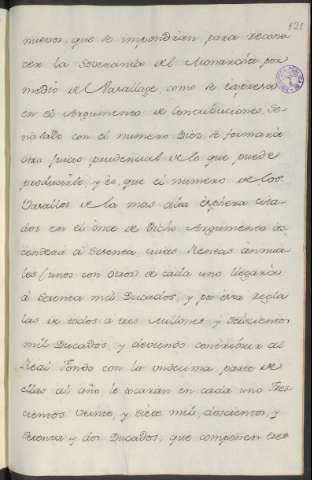 121
nuevos, que se impondrian para recono
cer la Soberania del Monarca por
medio de Vasallage, como se expresa
en el Argumento de Contribuciones, se-
ñalado con el numero Diez, se formaria
otro juicio prudencial de lo que puede
producirle, y es, que el numero de los
Vasallos de la mas alta Esphera cita-
dos en el once de Dicho Argumento as-
cenderá á sesenta, cuias Rentas annua
les (unos con otros) de cada uno llegarán
á sesenta mil Ducados, y por esta regla
las de todos a tres millones y seiscientos
mil Ducados, y deviendo contribuir al
Real fondo con la undecima parte de
ellas al año le tocarán en cada uno Tres-
cientos veinte, y siete mil, doscientos, y
setenta y dos Ducados, que componen tres